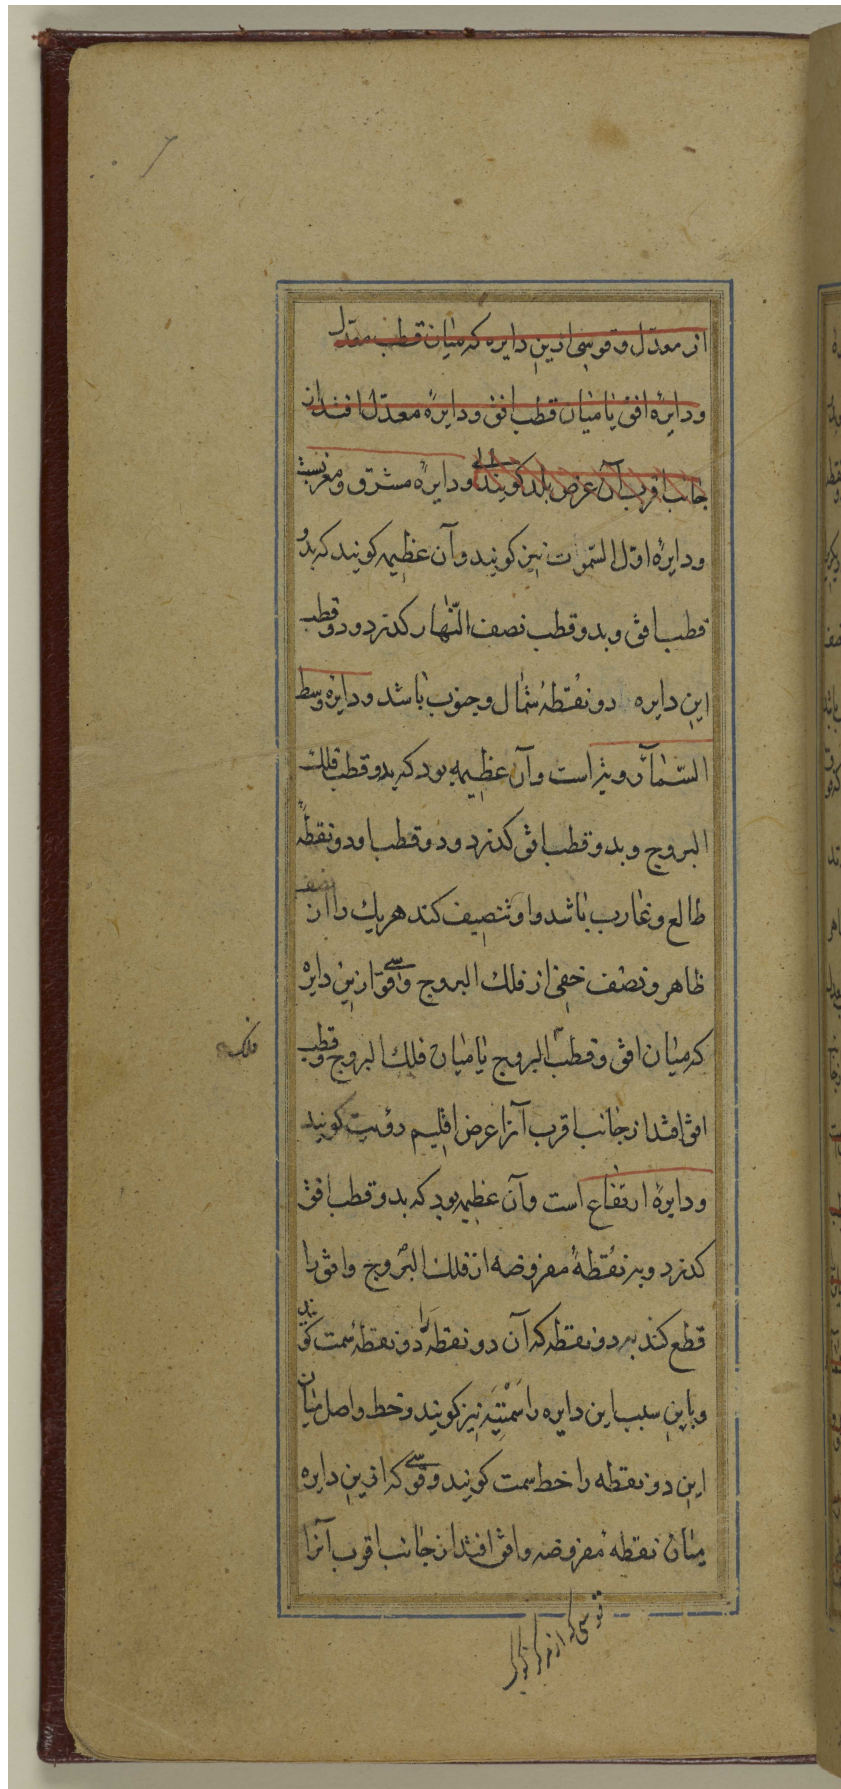 از معدّل و قوسی ازین دایره که میان قطب معدّل
و دایرهٔ افق یا میان قطب افق و دایرهٔ معدّل افتد از
جانب اقرب آن عرض بلد کویند و دایرهٔ مشرق و مغربست
و دایرهٔ اوّل السّموت نیز کویند و آن عظیمه کویند که بدو
قطب افق و بدو قطب نصف النّهار کذرد و دو قطب
این دایره دو نقطهٔ شمال و جنوب باشد و دایرهٔ وسط
السّمآء رویة است و آن عظیمه بود که بدو قطب فلك
البروج و بدو قطب افق کذرد و دو قطب او دو نقطهٔ
طالع و غارب باشد و او تنصیف کند هر یك را از نصف
ظاهر و نصف خفی از فلك البروج و قوسی ازین دایره
که میان افق و قطب البروج یا میان فلك البروج و قطب
فلك
افق افتد از جانب اقرب آنرا عرض اقلیم رؤیت کویند
و دایرهٔ ارتفاع است و آن عظیمه بود که بدو قطب افق
کذرد و بر نقطهٔ مفروضه از فلك البروج و افق را
قطع کند بر دو نقطه که آن دو نقطه را دو نقطهٔ سمت کویند
و باین سبب این دایره را سمتیّه نیز کویند و خط واصل میان
این دو نقطه را خط سمت کویند و قوسی که ازین دایره
میان نقطه مفروضه و افق افتد از جانب اقرب آنرا
قوسی که از